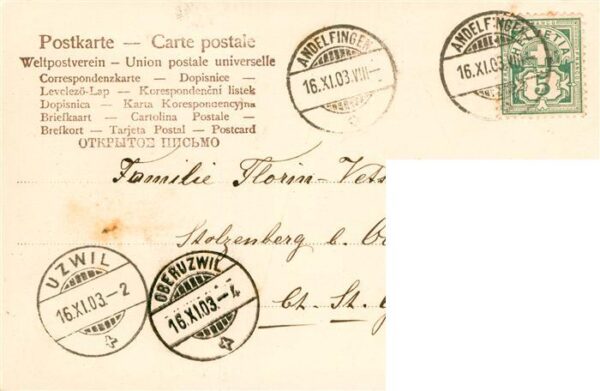 Postkarte — Carte postale
Weltpostverein — Union postale universelle
Correspondenzkarte — Dopisnice —
Levelező-Lap — Korespondenční listek
Dopisnica — Karta Korespondencyjna
Briefkaart — Cartolina Postale —
Brefkort — Tarjeta Postal — Postcard
ОТКРЫТОЕ ПИСЬМО
ANDELFINGEN
16.XI.03.VIII—
ANDELFINGEN
16.XI.03.VIII
5
Familie Florin-
Stolzenberg b.
Ct. St.
UZWIL
16.XI.03.—2
OBERUZWIL
16.XI.03.—4